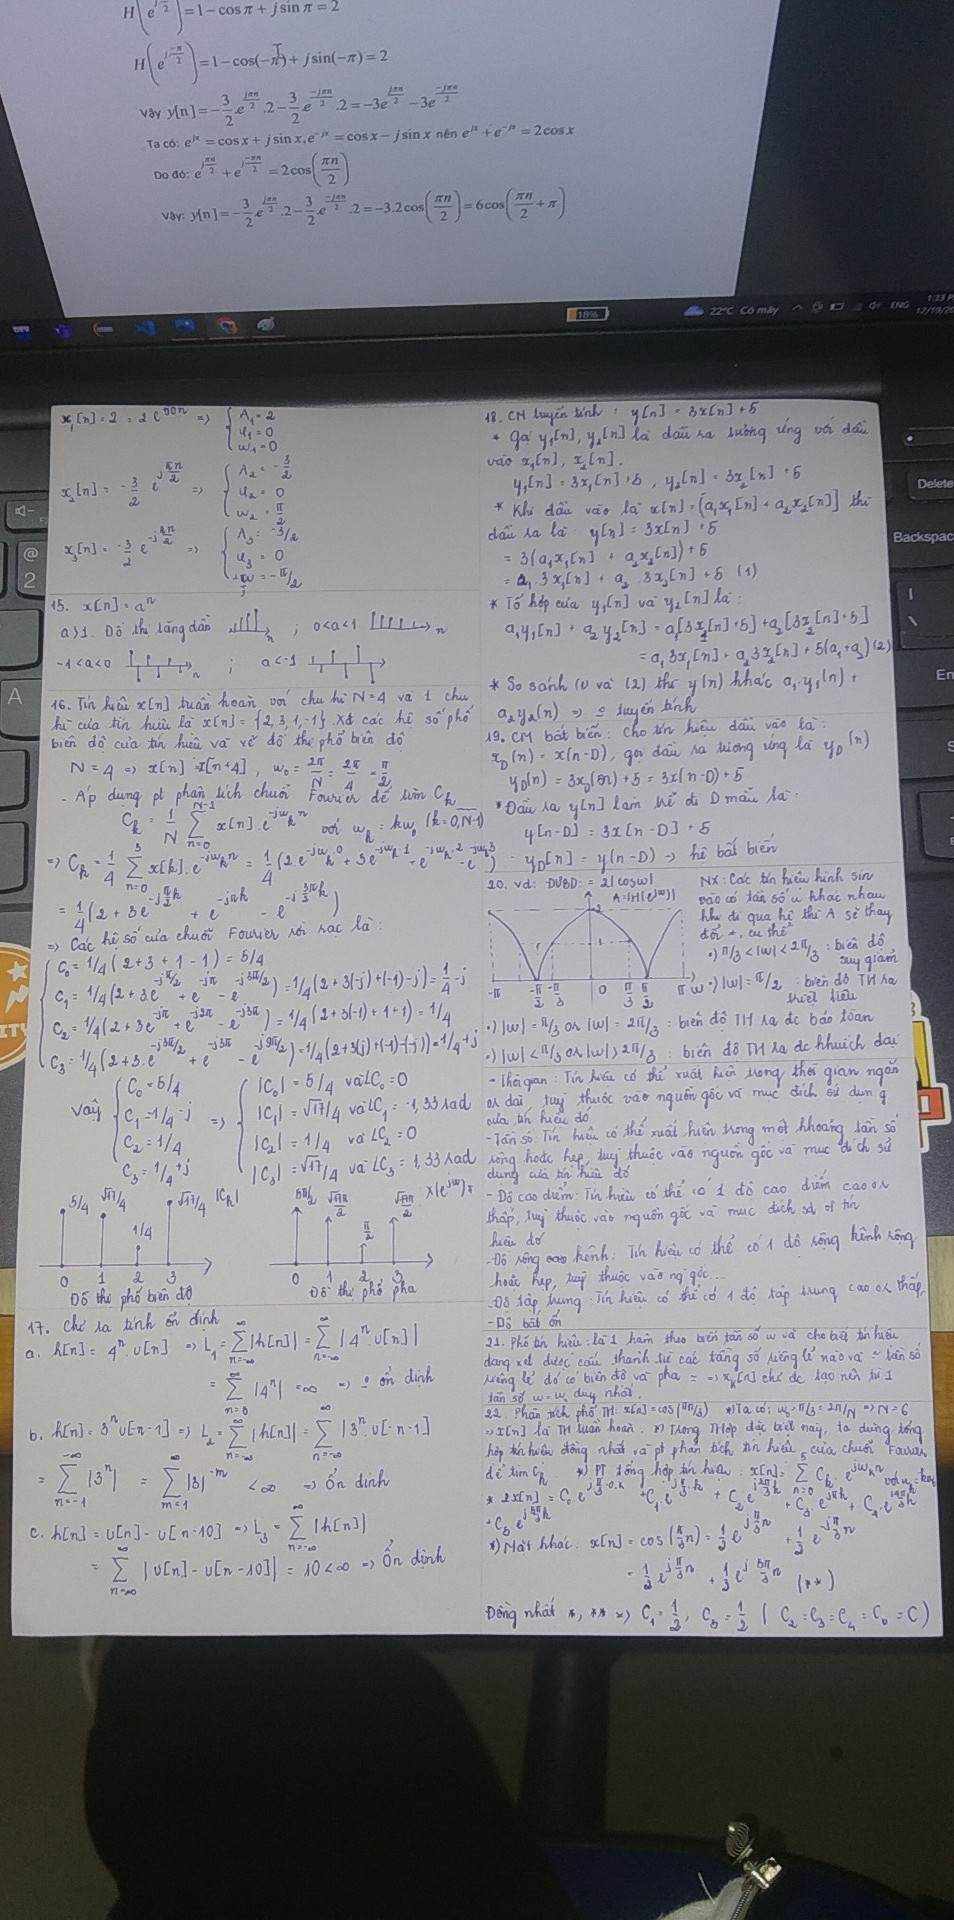 H(e^{jπ/2}) = 1 − cos π + j sin π = 2
H(e^{j−π/2}) = 1 − cos(−π) + j sin(−π) = 2
Vậy y[n] = −3/2 .e^{jπn/2}.2 − 3/2 .e^{−jπn/2}.2 = −3e^{jπn/2} − 3e^{−jπn/2}
Ta có: e^{jx} = cos x + j sin x, e^{−jx} = cos x − j sin x nên e^{jx} + e^{−jx} = 2cos x
Do đó: e^{jπn/2} + e^{j−πn/2} = 2cos(πn/2)
Vậy: y[n] = −3/2 .e^{jπn/2}.2 − 3/2 .e^{−jπn/2}.2 = −3.2cos(πn/2) = 6cos(πn/2 + π)
18%
22°C Có mây
ENG
1:33 P
12/19/20
Delete
Backspac
En
@
2
A
x₁[n] = 2 = 2 e^{j0n} => { A₁ = 2
φ₁ = 0
ω₁ = 0
x₂[n] = -3/2 e^{jπn/2} => { A₂ = -3/2
φ₂ = 0
ω₂ = π/2
x₃[n] = -3/2 e^{-jπn/2} => { A₃ = -3/2
φ₃ = 0
ω₃ = -π/2
15. x[n] = aⁿ
a>1. Đồ thị tăng dần n ; 0<a<1 n
-1<a<0 n ; a<-1
16. Tín hiệu x[n] tuần hoàn với chu kì N=4 và 1 chu
kì của tín hiệu là x[n] = {2,3,1,-1}. Xđ các hệ số phổ
biên độ của tín hiệu và vẽ đồ thị phổ biên độ
N=4 => x[n] = x[n+4], ω₀ = 2π/N = 2π/4 = π/2
- Áp dụng pt phân tích chuỗi Fourier để tìm Cₖ
Cₖ = 1/N ∑_{n=0}^{N-1} x[n].e^{-jωₖn} với ωₖ = kω₀ (k=0,N-1)
=> Cₖ = 1/4 ∑_{n=0}^{3} x[k].e^{-jωₖn} = 1/4 (2e^{-jωₖ.0} + 3e^{-jωₖ.1} + e^{-jωₖ.2} - e^{-jωₖ3})
= 1/4 (2 + 3e^{-jπ/2 k} + e^{-jπk} - e^{-j3π/2 k})
=> Các hệ số của chuỗi Fourier rời rạc là:
C₀ = 1/4 (2+3+1-1) = 5/4
C₁ = 1/4(2+3e^{-jπ/2} + e^{-jπ} - e^{-j3π/2}) = 1/4(2+3(-j)+(-1)-j) = 1/4 - j
C₂ = 1/4(2+3e^{-jπ} + e^{-j2π} - e^{-j3π}) = 1/4(2+3(-1)+1+1) = 1/4
C₃ = 1/4(2+3.e^{-j3π/2} + e^{-j3π} - e^{-j9π/2}) = 1/4(2+3(j)+(-1)-(-j)) = 1/4+j
Vậy { C₀ = 5/4
C₁ = 1/4 - j
C₂ = 1/4
C₃ = 1/4 + j
=> { |C₀| = 5/4 và ∠C₀ = 0
|C₁| = √17/4 và ∠C₁ = -1,33 rad
|C₂| = 1/4 và ∠C₂ = 0
|C₃| = √17/4 và ∠C₃ = 1,33 rad
5/4 √17/4 1/4 √17/4 |Cₖ|
0 1 2 3
Đồ thị phổ biên độ
5π/2 √17π/2 π/2 √17π/2 X(e^{jω})
0 1 2 3
Đồ thị phổ pha
17. Chỉ ra tính ổn định
a. h[n] = 4ⁿ.u[n] => L₁ = ∑_{n=-∞}^{∞} |h[n]| = ∑_{n=-∞}^{∞} |4ⁿ u[n]|
= ∑_{n=0}^{∞} |4ⁿ| = ∞ => ổn định
b. h[n] = 3ⁿ u[-n-1] => L₂ = ∑_{n=-∞}^{∞} |h[n]| = ∑_{n=-∞}^{∞} |3ⁿ.u[-n-1]
= ∑_{n=-1}^{-∞} |3ⁿ| = ∑_{m=1}^{∞} |3|^{-m} < ∞ => Ổn định
c. h[n] = u[n] - u[n-10] => L₃ = ∑_{n=-∞}^{∞} |h[n]|
= ∑_{n=-∞}^{∞} |u[n] - u[n-10]| = 10 < ∞ => Ổn định
18. CM tuyến tính : y[n] = 3x[n] + 5
* gọi y₁[n], y₂[n] là đầu ra tương ứng với đầu
vào x₁[n], x₂[n].
y₁[n] = 3x₁[n]+5, y₂[n] = 3x₂[n] + 5
* Khi đầu vào là x[n] = [a₁x₁[n] + a₂x₂[n]] thì
đầu ra là: y[n] = 3x[n] + 5
= 3(a₁x₁[n] + a₂x₂[n]) + 5
= a₁.3x₁[n] + a₂.3x₂[n] + 5 (1)
* Tổ hợp của y₁[n] và y₂[n] là:
a₁y₁[n] + a₂y₂[n] = a₁[3x₁[n]+5] + a₂[3x₂[n]+5]
= a₁3x₁[n] + a₂3x₂[n] + 5(a₁+a₂) (2)
* So sánh (1) và (2) thì y(n) khác a₁.y₁(n) +
a₂y₂(n) => tuyến tính
19. CM bất biến: Cho tín hiệu đầu vào là:
x_D(n) = x(n-D), gọi đầu ra tương ứng là y_D(n)
y_D(n) = 3x_D(n) + 5 = 3x(n-D)+5
* Đầu ra y[n] làm trễ đi D mẫu là:
y[n-D] = 3x[n-D] + 5
y_D[n] = y(n-D) -> hệ bất biến
20. vd: ĐUBĐ: = 2|cosω|
A=|H(e^{jω})|
2
1
-π -π/2 -π/3 0 π/3 π/2 π ω
NX: Các tín hiệu hình sin
vào có tần số ω khác nhau
khi đi qua hệ thì A sẽ thay
đổi, cụ thể
•) π/3 < |ω| < 2π/3 : biên độ
suy giảm
•) |ω| = π/2 : biên độ TH ra
triệt tiêu
•) |ω| = π/3 or |ω| = 2π/3 : biên độ TH ra đc bảo toàn
•) |ω| < π/3 or |ω| > 2π/3 : biên độ TH ra đc khuếch đại
- Thời gian: Tín hiệu có thể xuất hiện trong thời gian ngắn
or dài, tuỳ thuộc vào nguồn gốc và mục đích sử dụng
của tín hiệu đó
- Tần số: Tín hiệu có thể xuất hiện trong một khoảng tần số
rộng hoặc hẹp, tuỳ thuộc vào nguồn gốc và mục đích sử
dụng của tín hiệu đó
- Độ cao điểm: Tín hiệu có thể có 1 độ cao điểm cao or
thấp, tuỳ thuộc vào nguồn gốc và mục đích sd of tín
hiệu đó
- Độ rộng kênh: Tín hiệu có thể có 1 độ rộng kênh rộng
hoặc hẹp, tuỳ thuộc vào ng gốc...
- Độ tập trung: Tín hiệu có thể có 1 độ tập trung cao or thấp,
- Độ bất ổn
21. Phổ tín hiệu: là 1 hàm theo biến tần số ω và cho biết tín hiệu
đang xét được cấu thành từ các tầng số riêng lẻ nào và tần số
riêng lẻ đó có biên độ và pha = => xₖ[n] chỉ đc tạo nên từ 1
tần số ω = ωₖ duy nhất.
22. Phân tích phổ TH: x[n] = cos(πn/3) *) Ta có: ω₀ = π/3 = 2π/N => N = 6
-> x[n] là TH tuần hoàn. *) Trong THợp đặc biệt này, ta dùng tổng
hợp tín hiệu đồng nhất và pt phân tích tín hiệu của chuỗi Fourier
để tìm Cₖ *) PT tổng hợp tín hiệu: x[n] = ∑_{n=0}^{5} Cₖ.e^{jωₖn}
* 2x[n] = C₀e^{jπ/3.0.k} + C₁e^{jπ/3.k} + C₂e^{j2π/3k} + C₃e^{jπk} + C₄.e^{j4π/3k}
+ C₅e^{j5π/3k}
*) Mặt khác: x[n] = cos(π/3 n) = 1/2 e^{jπ/3n} + 1/2 e^{-jπ/3n}
= 1/2 e^{jπ/3n} + 1/2 e^{j5π/3n} (**)
Đồng nhất *, ** => C₁ = 1/2, C₅ = 1/2 ( C₂ = C₃ = C₄ = C₀ = C)